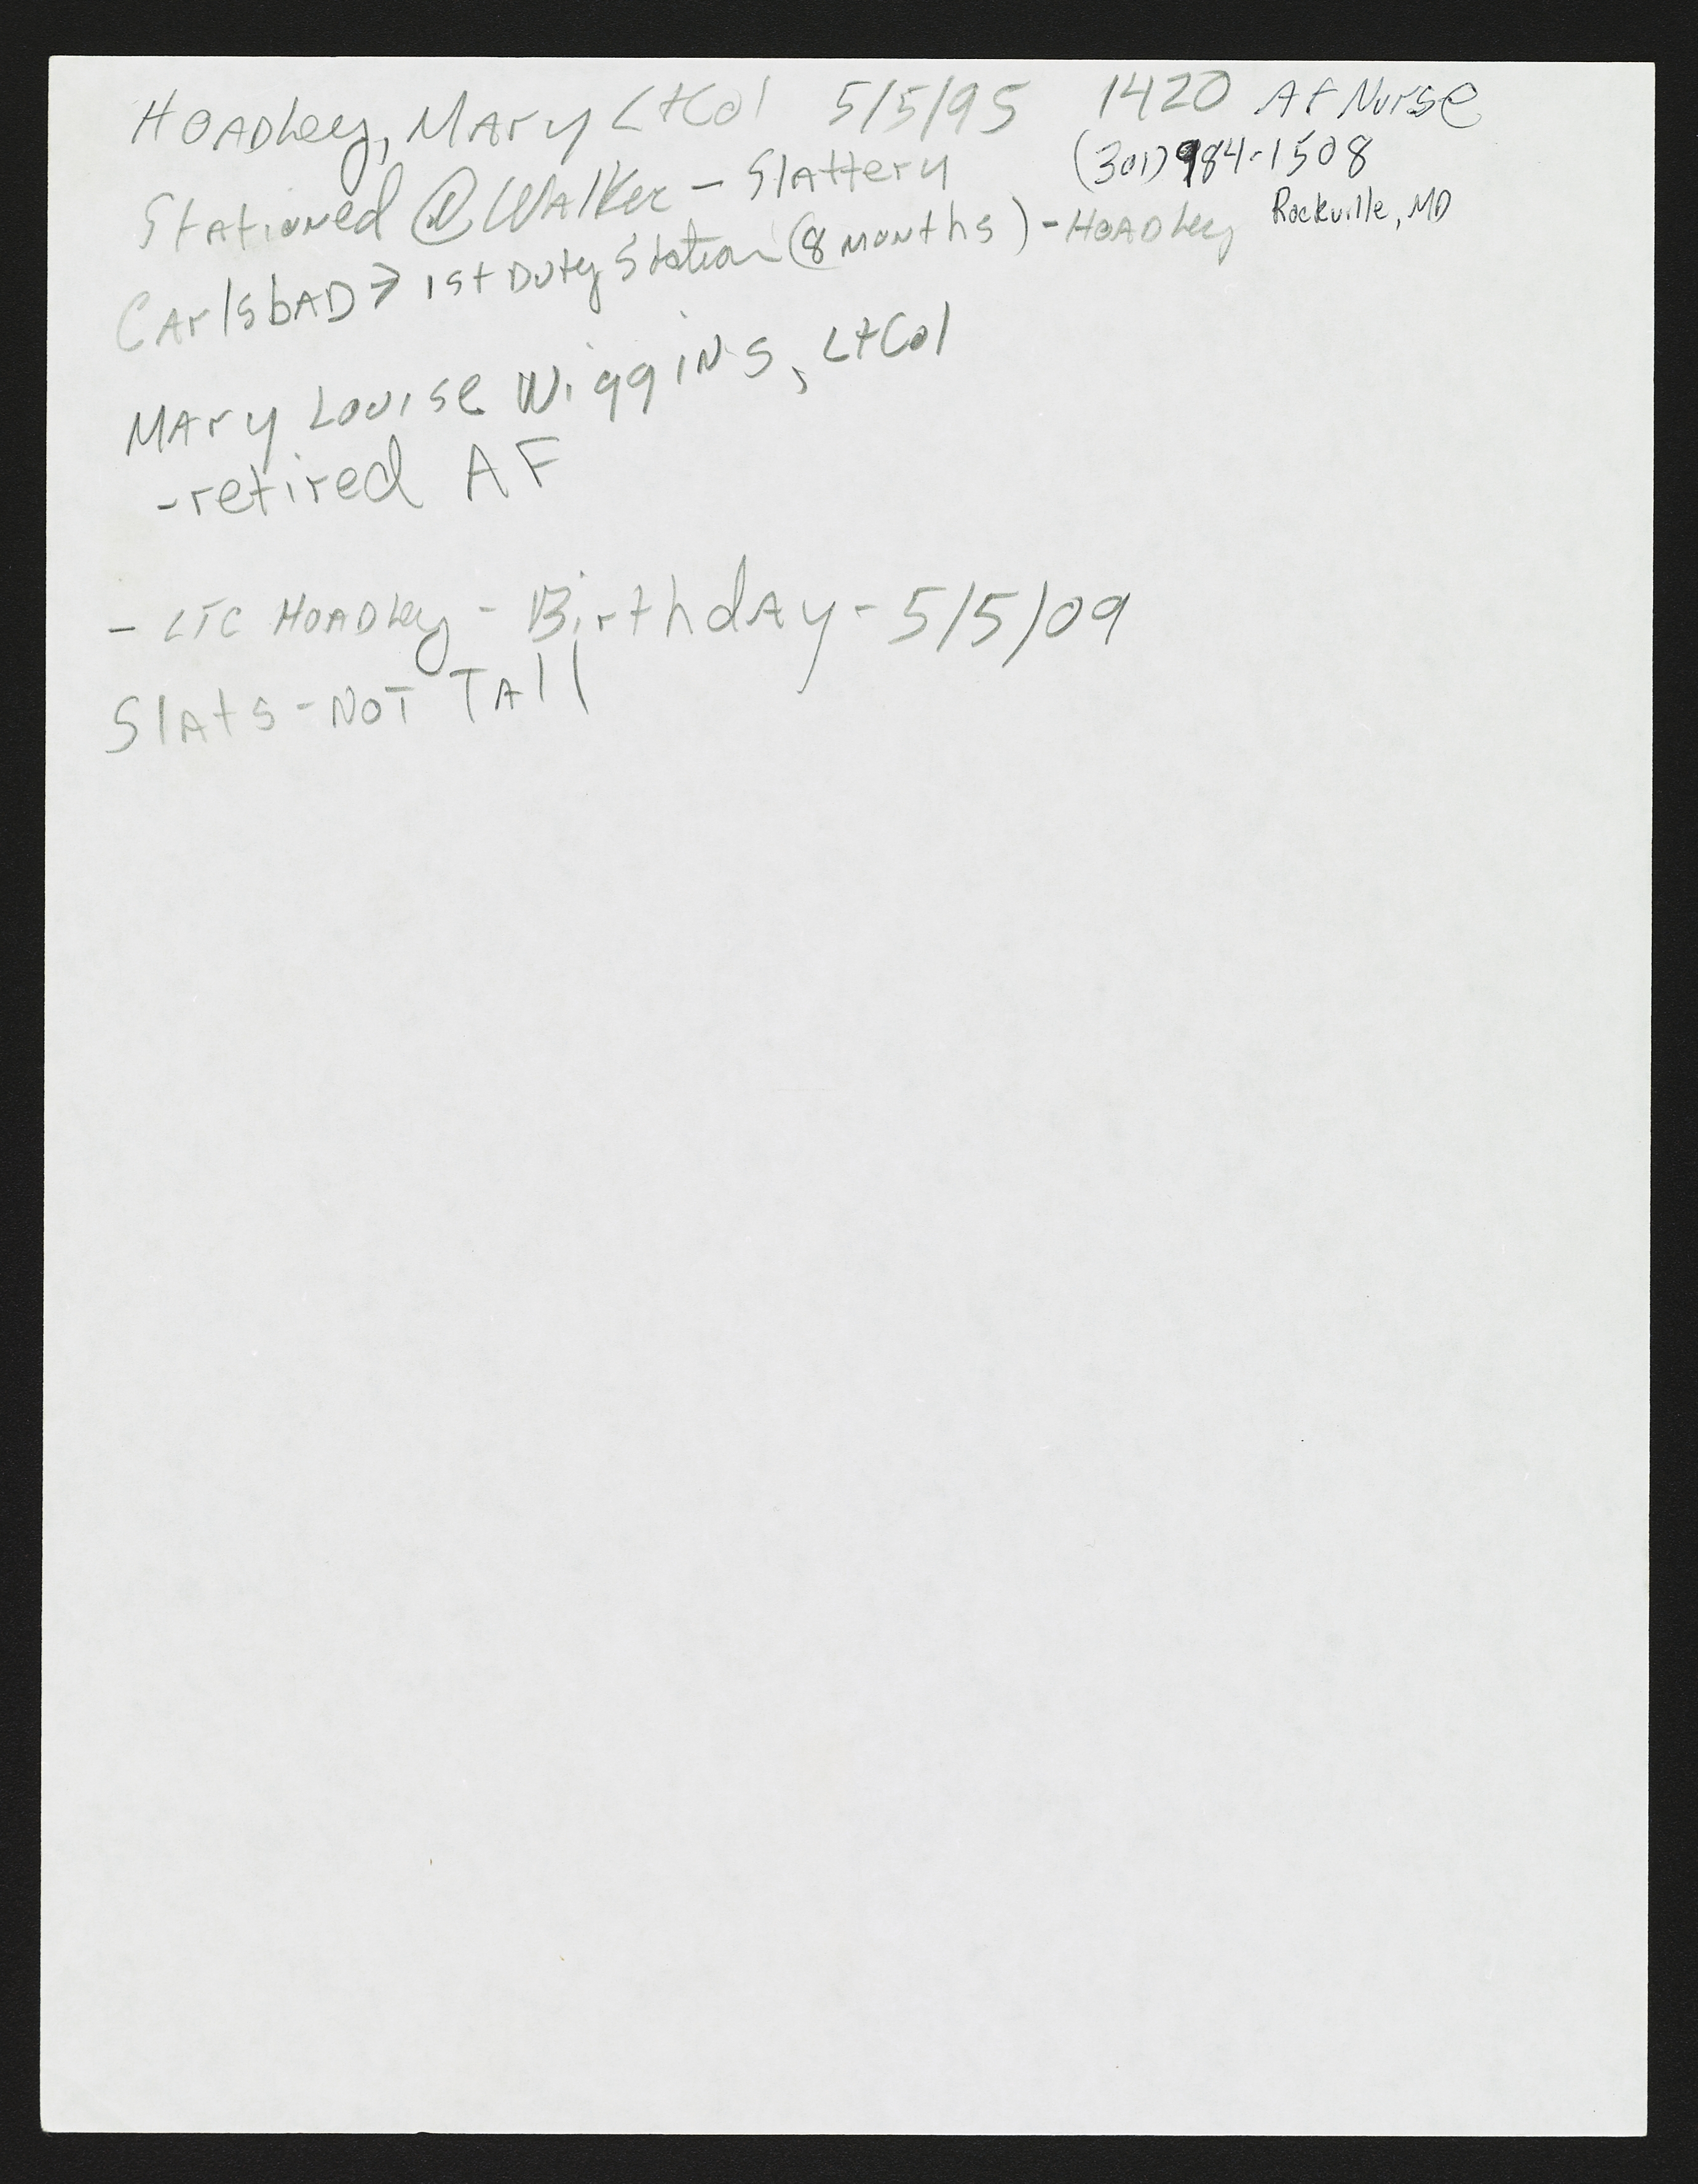 Hoadley, Mary LtCol 5/5/95 1420 AF Nurse
(301) 984-1508
Stationed @ Walker - Slattery
Rockville, MD
Carlsbad > 1st Duty Station (8 months) - Hoadley
Mary Louise Wiggins, LtCol
- retired AF
- LTC Hoadley - Birthday - 5/5/09
Slats - Not Tall